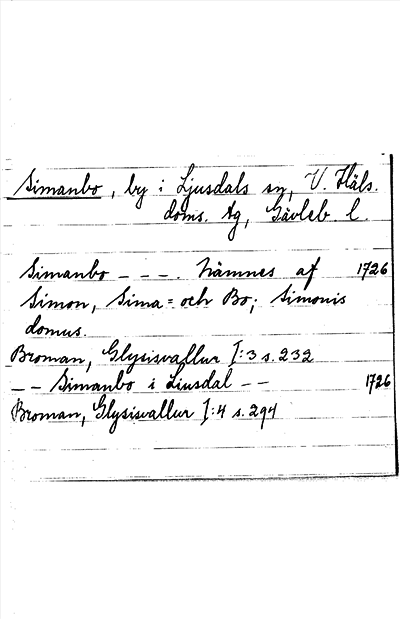 Simanbo, by i Ljusdals sn, V. Häls.
doms. tg, Gävleb. l.
Simanbo - - - . Nämnes af 1726
Simon, Sima= och Bo; Simonis
domus.
Broman, Glysisvallur I:3 s. 232
- - Simanbo i Liusdal - - 1726
Broman, Glysisvallur I:4 s. 294